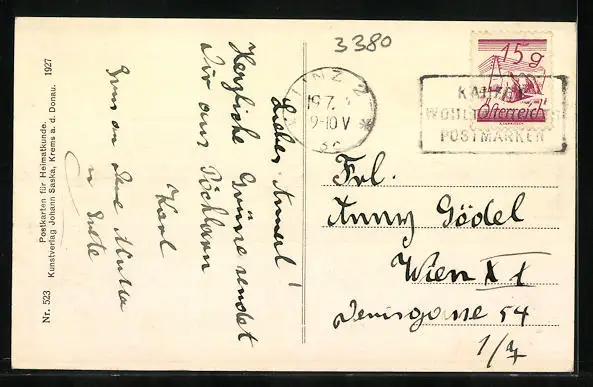 3380
15 g
Österreich
LINZ 2
19.7.
9-10 V
KAUFET
WOHL
POSTMARKEN
Frl.
Anny Gödel
Wien XX
Denisgasse 54
1/7
Lieber Annerl!
Herzliche Grüsse sendet
Dir aus Pöchlarn
Karl
Gruss an Deine Mutter
u. Tante
Nr. 523 Postkarten für Heimatkunde. 1927
Kunstverlag Johann Saska, Krems a. d. Donau.